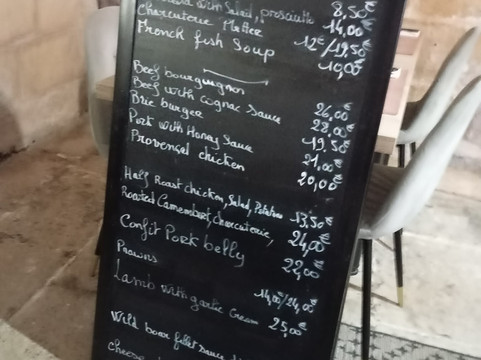 with Salad, prosciutto 8,50€
Charcuterie Platter 14,00€
French fish Soup 12€/19,50€
10,00€
Beef bourguignon
Beef with cognac Sauce 26,00€
Brie burger 28,00€
Pork with Honey Sauce 19,50€
Provençal chicken 21,00€
20,00€
Half Roast chicken, Salad, Potatoes 13,50€
Roasted Camembert, charcuterie, 24,00€
Confit Pork belly 22,00€
Prawns 14,00/24,00€
Lamb with garlic Cream 25,00€
Wild boar fillet Sauce
cheese